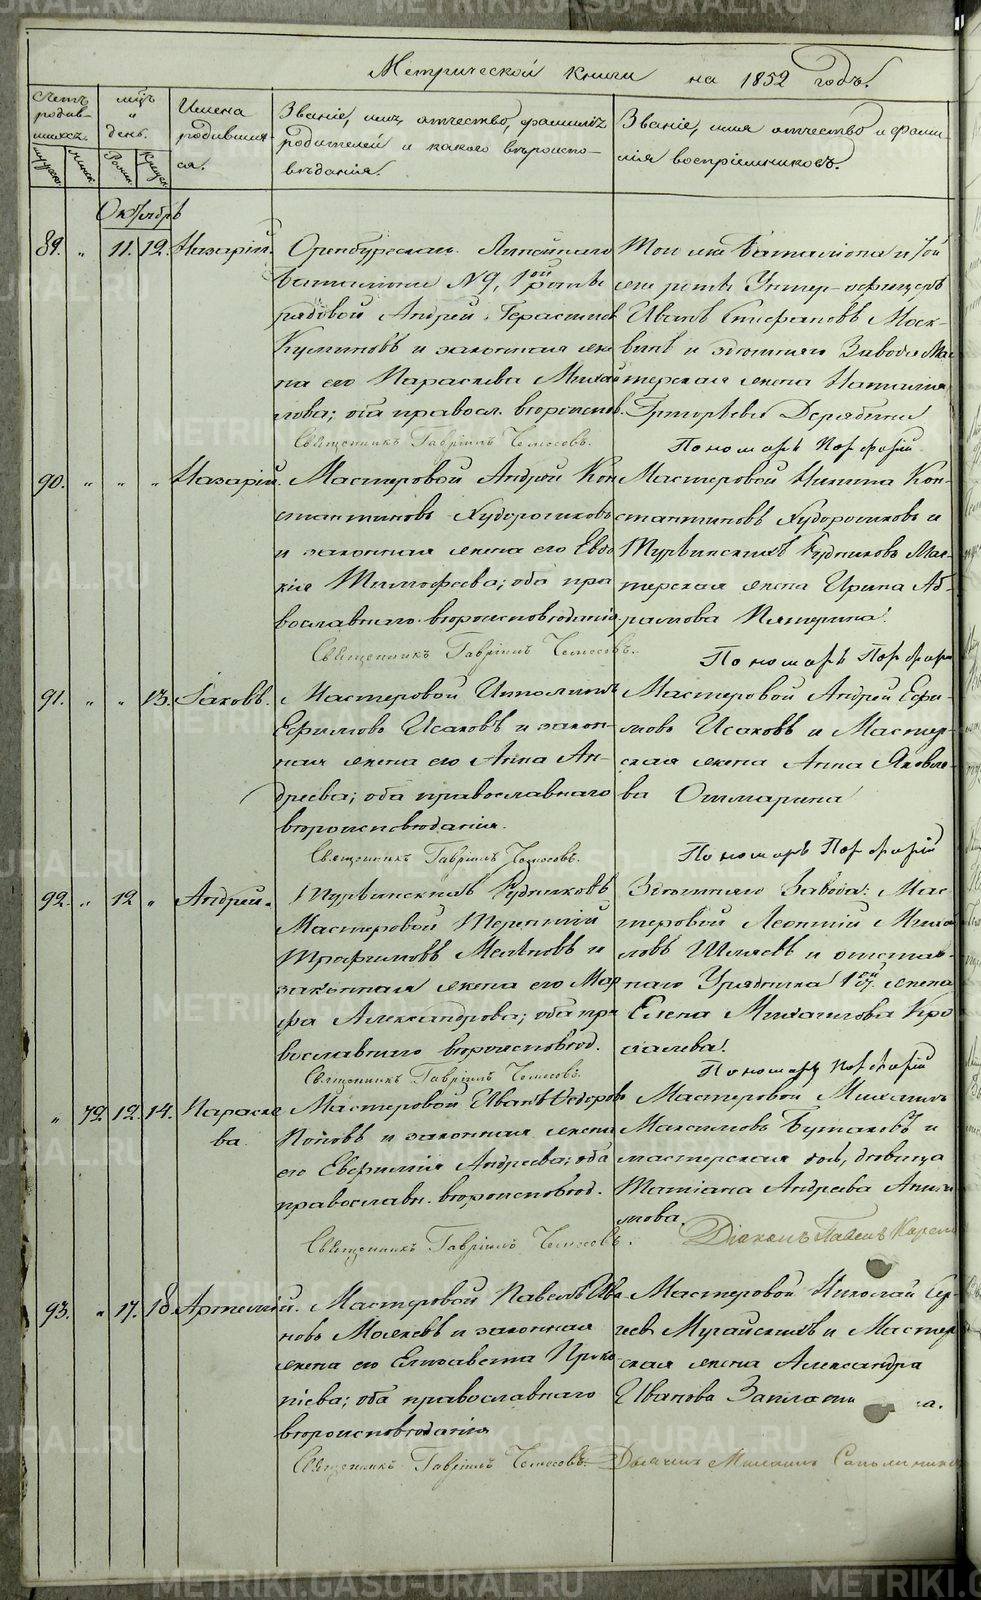 Метрической книги на 1852 годъ.
Счетъ родив-шихся.
мужск.
женск.
мцъ и день.
Рожд.
Крещен.
Имена родившихся.
Званіе, имя, отчество, фамилія
родителей и какого вѣроиспо-
вѣданія.
Званіе, имя отчество и фами-
лія воспріемниковъ.
Октябрь
89. " 11. 12. Назарій.
Оренбургскаго Линейнаго
баталіона №9, 1ой роты
рядовой Андрей Герасимов
Кузминовъ и законная же
на его Параскева Михай
лова; оба правосл. вѣроиспов.
Священникъ Гавріилъ
Того же баталіона и
роты Унтер-офицеръ
Иванъ Стефановъ Моск-
винъ и здѣшняго Завода Мас
терская жена Наталія
Григорьева Дерябина
Пономарь Порфирій
90. " " " Назарій.
Мастеровой Андрей Кон
стантиновъ Худорошковъ
и законная жена его Евдо
кія Тимофеева; оба пра
вославнаго вѣроисповѣданія.
Священникъ Гавріилъ
Мастеровой Никита Кон-
стантиновъ Худорошковъ и
Турьинскихъ Рудниковъ Мас-
терская жена Ирина Аб-
рамова Пятерина.
Пономарь Порфири
91. " " 13. Іаковъ.
Мастеровой Ипполитъ
Ефимовъ Исаковъ и закон-
ная жена его Анна Ан-
дреева; оба православнаго
вѣроисповѣданія.
Священникъ Гавріилъ
Мастеровой Андрей Ефи-
мовъ Исаковъ и Мастер-
ская жена Анна Яковле-
ва
Пономарь Порфирій
92. " 12 " Андрей.
Турьинскихъ Рудниковъ
Мастеровой Терентій
Трофимовъ и
законная жена его Мар
фа Александрова; оба пра
вославнаго вѣроисповѣд.
Священникъ Гавріилъ
Здѣшняго Завода: Мас
теровой Леонтій Михай
ловъ и отстав-
наго Урядника 1ой ст. жена
Елена Михайлова

Пономарь Порфирій
" 72. 12. 14. Параске
ва.
Мастеровой Иванъ Ѳедоровъ
Поповъ и законная жена
его Евфимія Андреева; оба
православн. вѣроисповѣд.
Священникъ Гавріилъ
Мастеровой Михаилъ
Максимовъ Бутаковъ и
мастерская дочь, дѣвица
Татіана Андреева
мова.
Діаконъ Павелъ
93. " 17. 18. Артемій.
Мастеровой Павелъ Ива
новъ и законная
жена его Елисавета Проко
піева; оба православнаго
вѣроисповѣданія
Священникъ Гавріилъ
Мастеровой Николай Сер-
геевъ Мугайскихъ и Мастер
ская жена Александра
Иванова